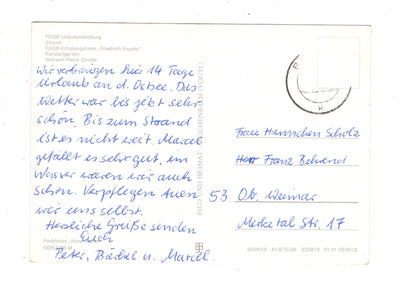 FDGB-Urlaubersiedlung
Strand
FDGB-Erholungsheim „Friedrich Engels“
Konzertgarten
Wilhelm-Pieck-Straße
Wir verbringen hier 14 Tage
Urlaub an d. Ostsee. Das
Wetter war bis jetzt sehr
schön. Bis zum Strand
ist es nicht weit. Marcel
gefällt es sehr gut, im
Wasser waren wir auch
schon. Verpflegen tuen
wir uns selbst.
Herzliche Grüße senden
Euch
Peter, Bärbel u. Marcel.
BILD UND HEIMAT REICHENBACH (VOGTL)
Frau Hannchen Scholz
Herr Franz Behrend
53 Ob. Weimar
Merketal Str. 17